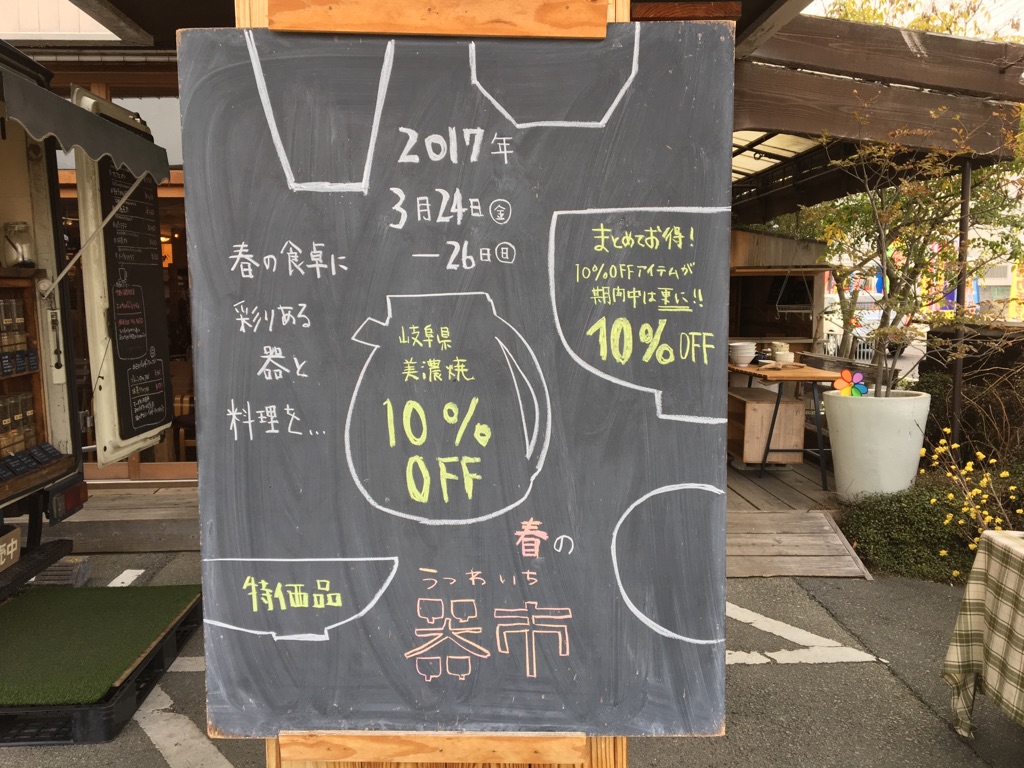 2017年
3月24日㊎
ー26日㊐
春の食卓に
彩りある
器と
料理を...
まとめてお得!
10%OFFアイテムが
期間中は更に!!
10% OFF
岐阜県
美濃焼
10%
OFF
特価品
春の
うつわいち
器市